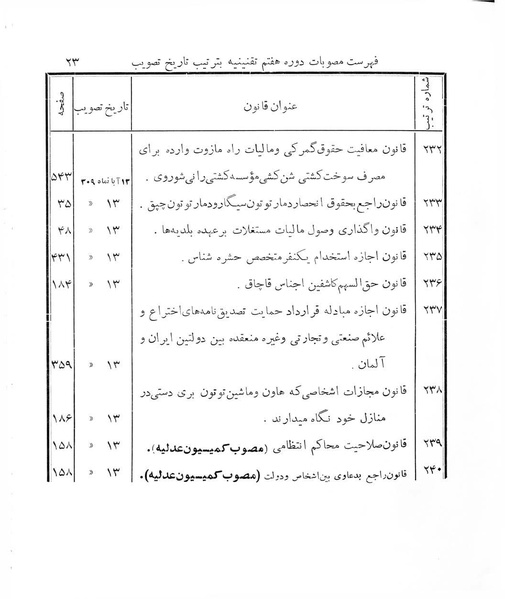 فهرست مصوبات دوره هفتم تقنینیه بترتیب تاریخ تصویب ۲۳
شماره ترتیب عنوان قانون تاریخ تصویب صفحه
۲۳۲ قانون معافیت حقوق گمرکی ومالیات راه مازوت وارده برای
مصرف سوخت کشتی شن کشی مؤسسه کشتی رانی شوروی . ۱۳ آبانماه ۳۰۹ ۵۴۳
۲۳۳ قانون راجع بحقوق انحصار دمار توتون سیگار و دمار توتون چپق . ۱۳ « ۳۵
۲۳۴ قانون واگذاری وصول مالیات مستغلات برعهده بلدیه ها . ۱۳ « ۴۸
۲۳۵ قانون اجازه استخدام یکنفر متخصص حشره شناس . ۱۳ « ۴۳۱
۲۳۶ قانون حق السهم کاشفین اجناس قاچاق . ۱۳ « ۱۸۴
۲۳۷ قانون اجازه مبادله قرارداد حمایت تصدیق نامه های اختراع و
علائم صنعتی وتجارتی وغیره منعقده بین دولتین ایران و
آلمان . ۱۳ « ۳۵۹
۲۳۸ قانون مجازات اشخاصی که هاون وماشین توتون بری دستی در
منازل خود نگاه میدارند . ۱۳ « ۱۸۶
۲۳۹ قانون صلاحیت محاکم انتظامی (مصوب کمیسیون عدلیه). ۱۳ « ۱۵۸
۲۴۰ قانون راجع بدعاوی بین اشخاص ودولت (مصوب کمیسیون عدلیه). ۱۳ « ۱۵۸